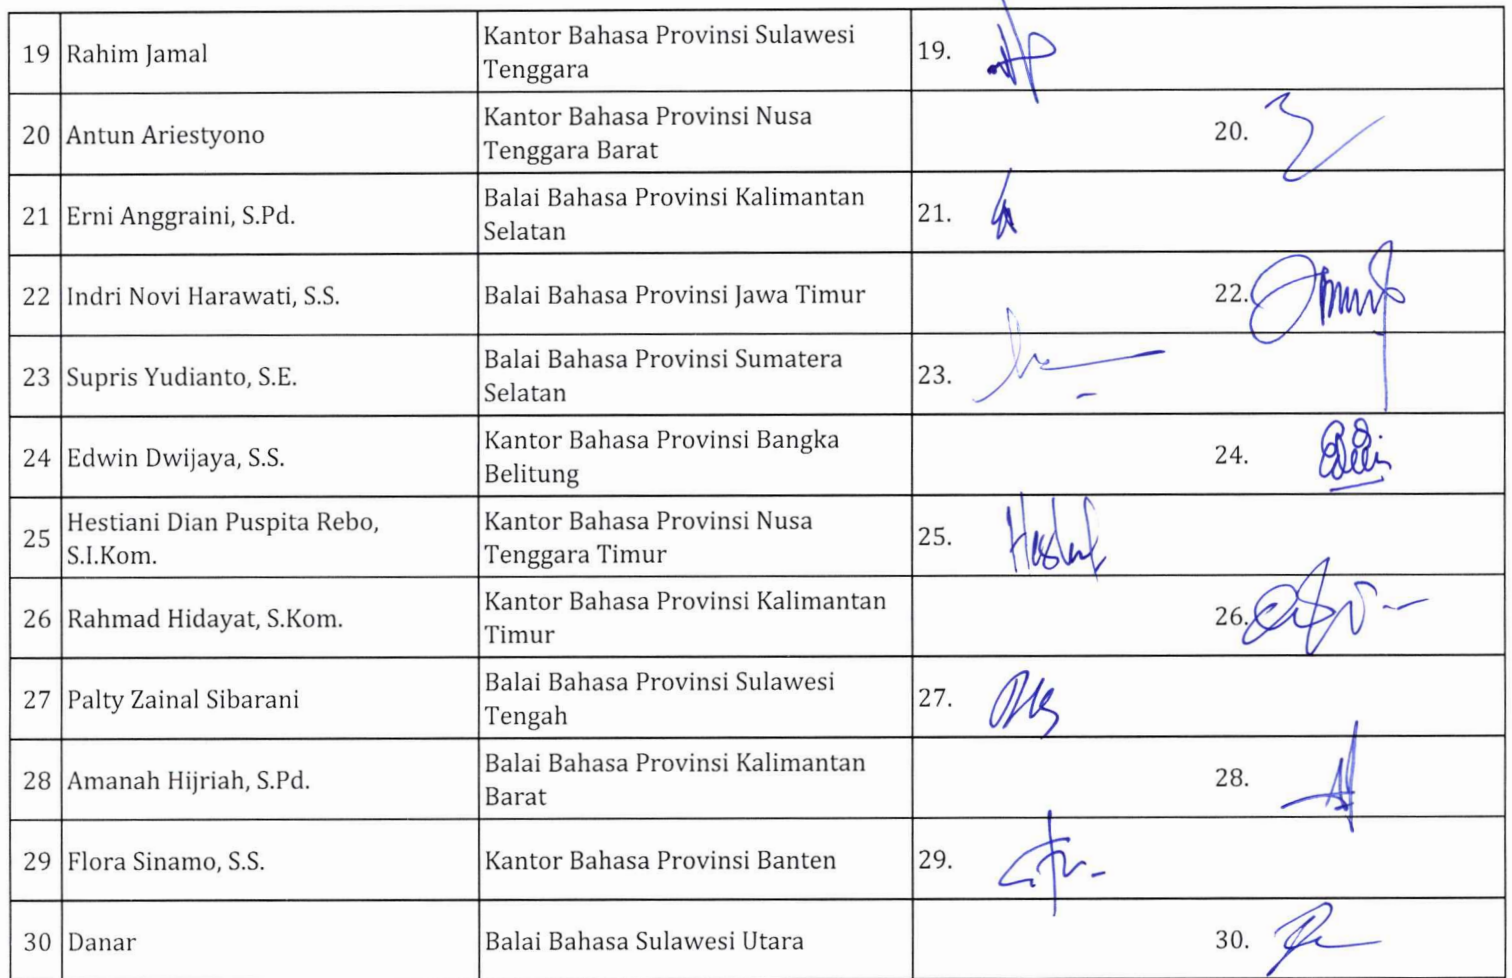 19 Rahim Jamal Kantor Bahasa Provinsi Sulawesi 19.
Tenggara
20 Antun Ariestyono Kantor Bahasa Provinsi Nusa 20.
Tenggara Barat
21 Erni Anggraini, S.Pd. Balai Bahasa Provinsi Kalimantan 21.
Selatan
22 Indri Novi Harawati, S.S. Balai Bahasa Provinsi Jawa Timur 22.
23 Supris Yudianto, S.E. Balai Bahasa Provinsi Sumatera 23.
Selatan
24 Edwin Dwijaya, S.S. Kantor Bahasa Provinsi Bangka 24.
Belitung
25 Hestiani Dian Puspita Rebo, Kantor Bahasa Provinsi Nusa 25.
S.I.Kom. Tenggara Timur
26 Rahmad Hidayat, S.Kom. Kantor Bahasa Provinsi Kalimantan 26.
Timur
27 Palty Zainal Sibarani Balai Bahasa Provinsi Sulawesi 27.
Tengah
28 Amanah Hijriah, S.Pd. Balai Bahasa Provinsi Kalimantan 28.
Barat
29 Flora Sinamo, S.S. Kantor Bahasa Provinsi Banten 29.
30 Danar Balai Bahasa Sulawesi Utara 30.